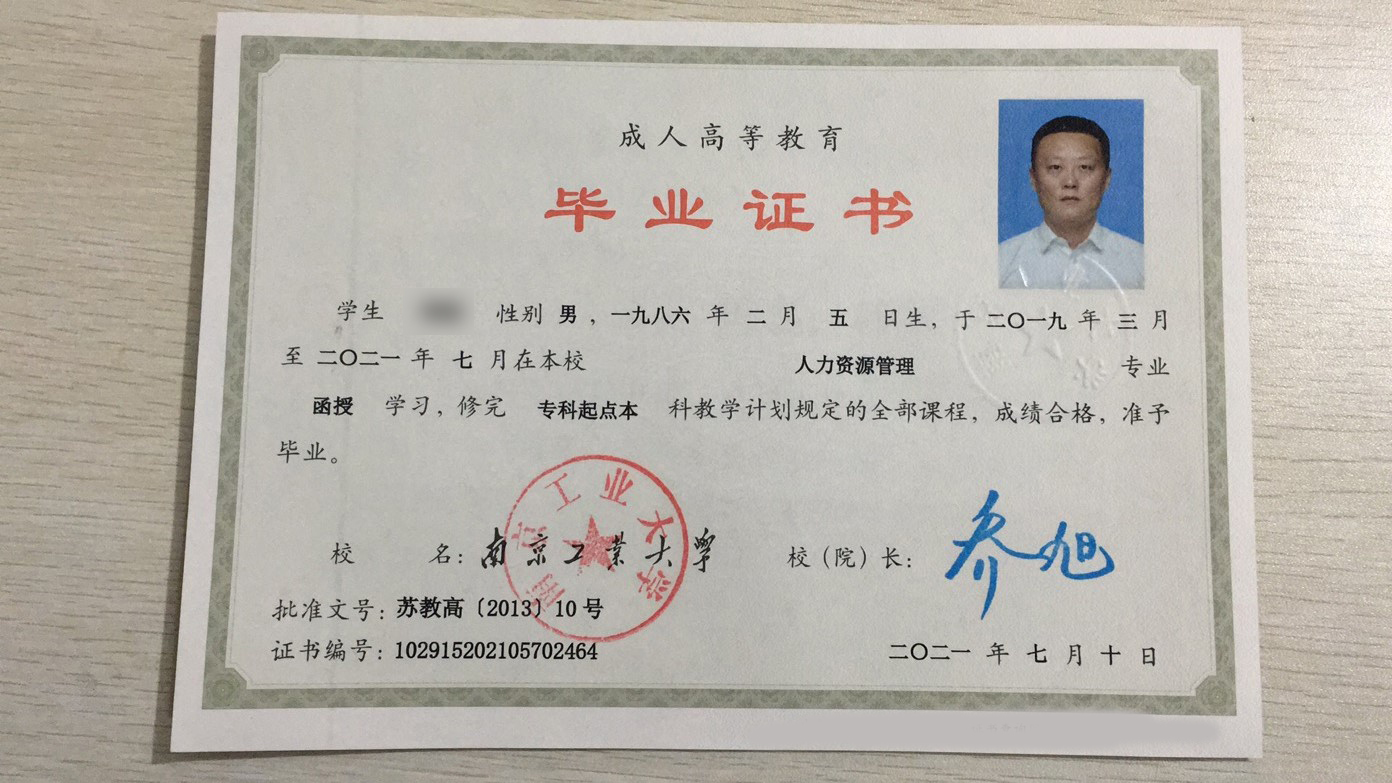 成人高等教育
毕业证书
学生 性别 男，一九八六 年 二 月 五 日生，于 二〇一九 年 三 月
至 二〇二一 年 七 月在本校 人力资源管理 专业
函授 学习，修完 专科起点本 科教学计划规定的全部课程，成绩合格，准予
毕业。
南京工业大学
校 名：南京工业大学 校（院）长：乔旭
批准文号：苏教高〔2013〕10 号
证书编号：102915202105702464 二〇二一 年 七 月 十 日